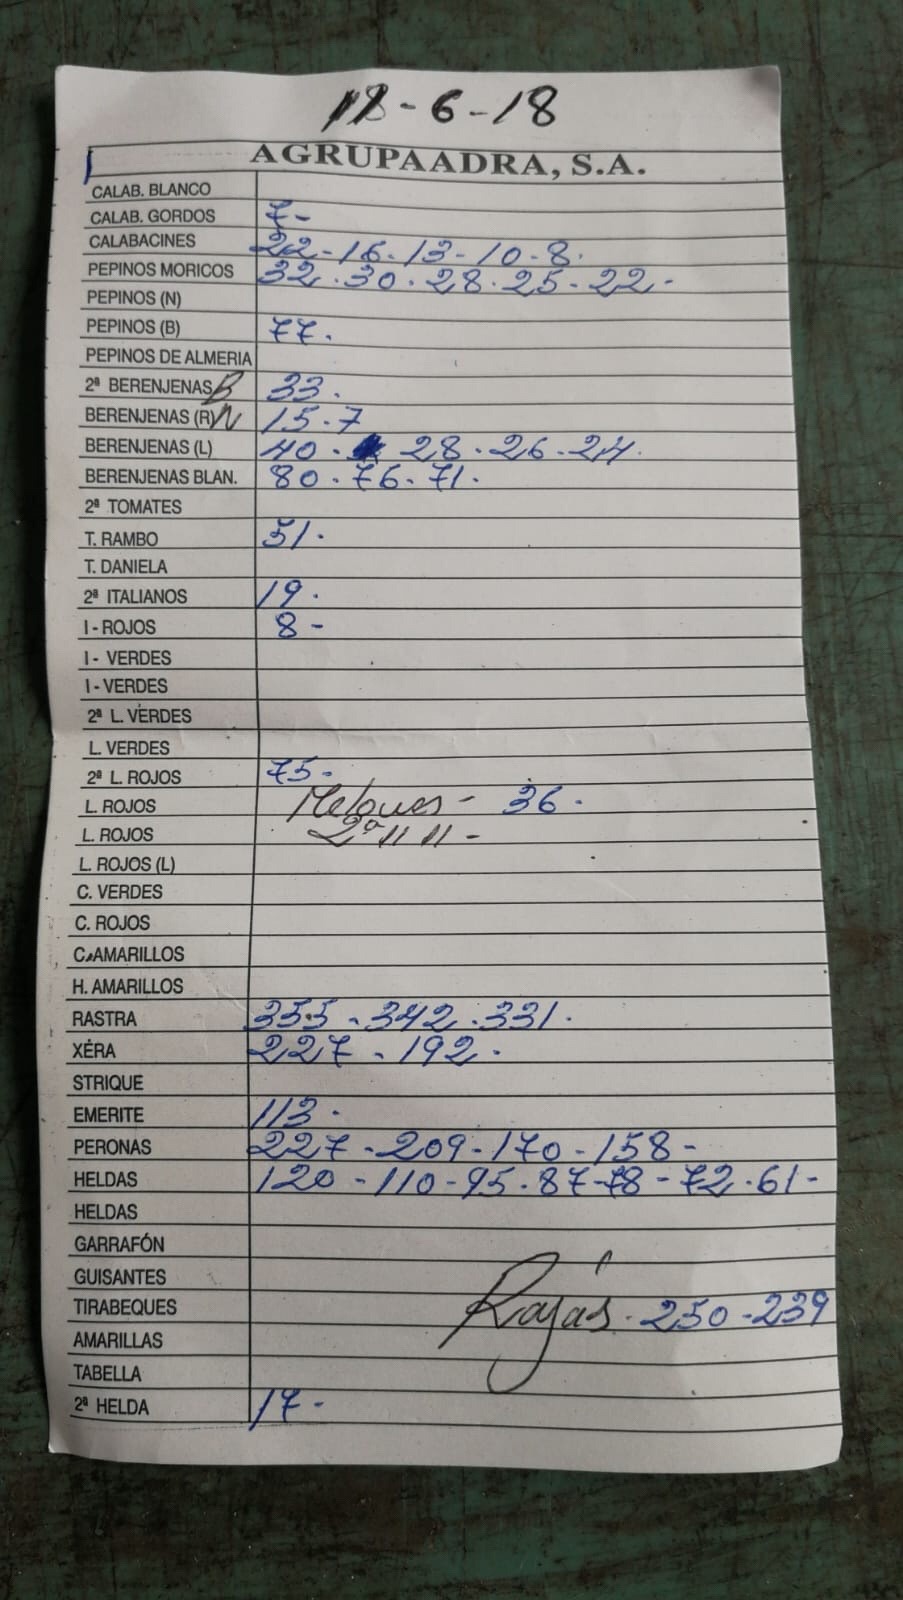 12-6-18
AGRUPAADRA, S.A.
CALAB. BLANCO
CALAB. GORDOS 7-
CALABACINES 22-16-13-10-8.
PEPINOS MORICOS 32.30.28.25-22-
PEPINOS (N)
PEPINOS (B) 77.
PEPINOS DE ALMERIA
2ª BERENJENAS B 33.
BERENJENAS (R) N 15.7
BERENJENAS (L) 40. 28.26.24.
BERENJENAS BLAN. 80.76.71.
2ª TOMATES
T. RAMBO 51.
T. DANIELA
2ª ITALIANOS 19.
I-ROJOS 8-
I-VERDES
I-VERDES
2ª L. VERDES
L. VERDES
2ª L. ROJOS 75-
L. ROJOS Melones- 36.
L. ROJOS 2ª 11 11-
L. ROJOS (L)
C. VERDES
C. ROJOS
C. AMARILLOS
H. AMARILLOS
RASTRA 355-342.331.
XÉRA 227-192.
STRIQUE
EMERITE 113.
PERONAS 227-209-170-158-
HELDAS 120-110-95.87-78-72.61-
HELDAS
GARRAFÓN
GUISANTES
TIRABEQUES Rajás. 250-239
AMARILLAS
TABELLA
2ª HELDA 17-